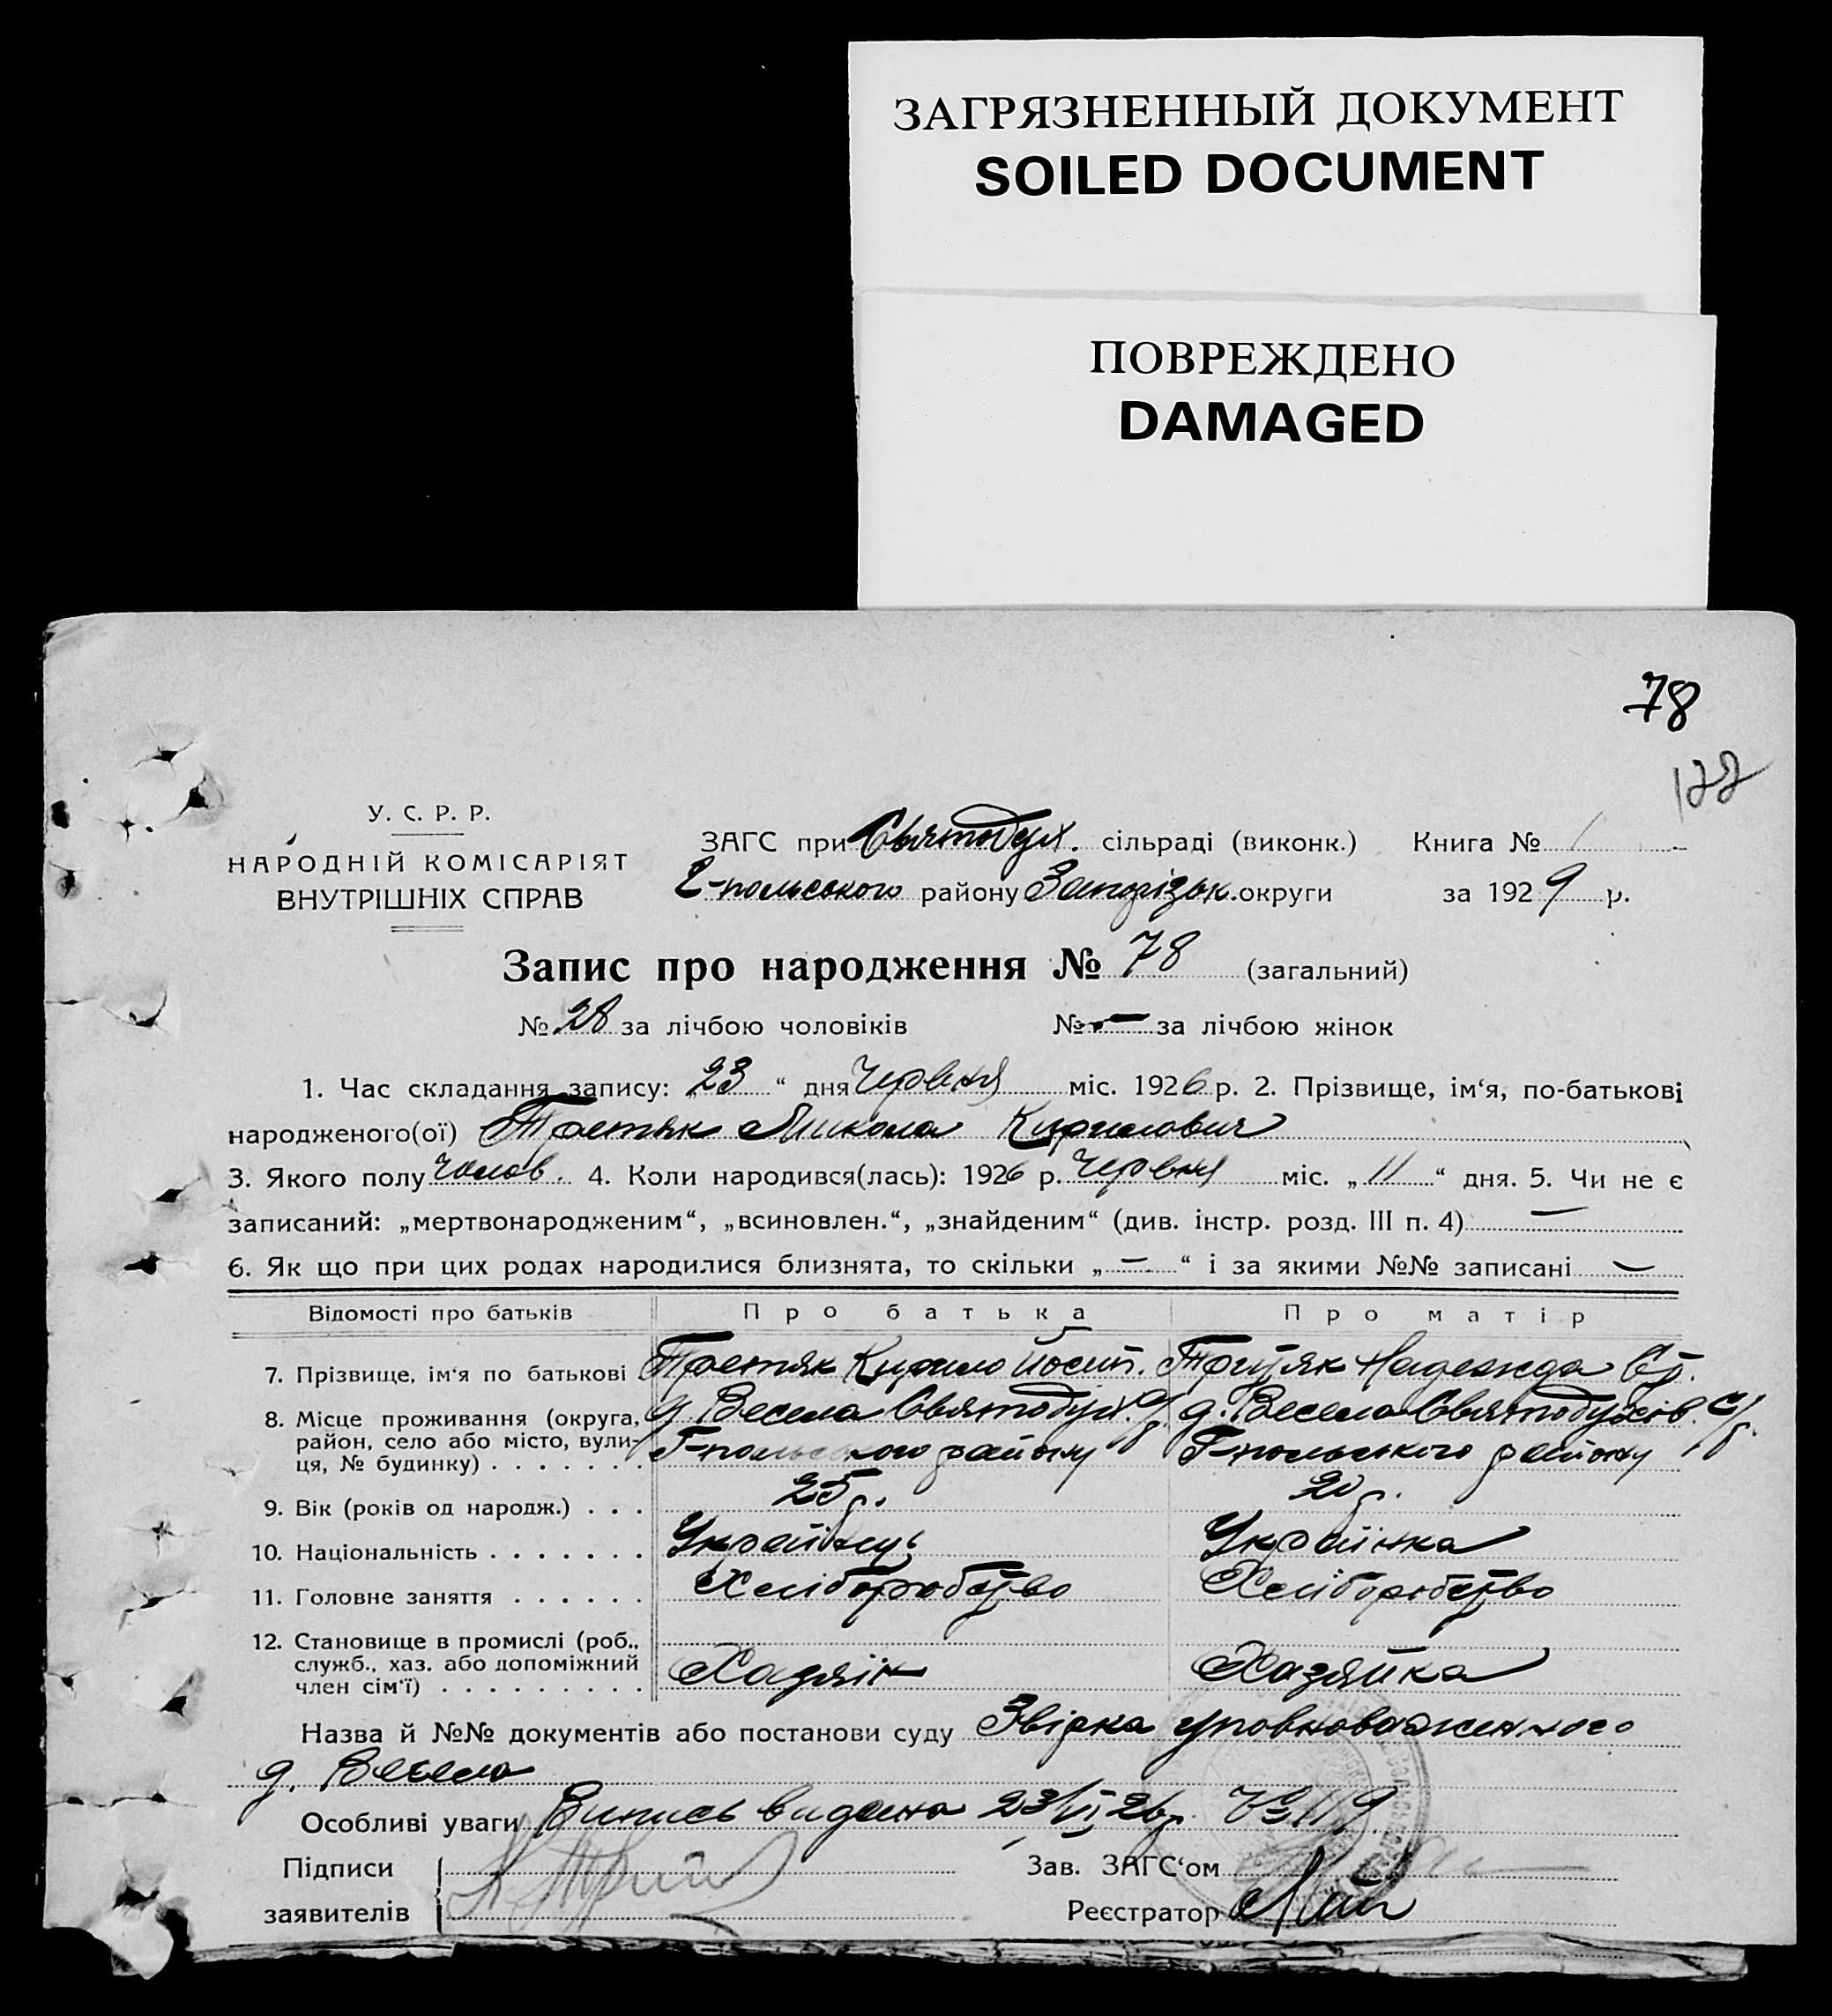 ЗАГРЯЗНЕННЫЙ ДОКУМЕНТ
SOILED DOCUMENT
ПОВРЕЖДЕНО
DAMAGED
78
У. С. Р. Р.
НАРОДНІЙ КОМІСАРІЯТ
ВНУТРІШНІХ СПРАВ
ЗАГС при Святодух. сільраді (виконк.) Книга № 1
-польського району Запорізьк. округи за 1929 р.
Запис про народження № 78 (загальний)
№ 28 за лічбою чоловіків № — за лічбою жінок
1. Час складання запису: „23“ дня червня міс. 1926 р. 2. Прізвище, ім‘я, по-батькові
народженого(ої) Третяк Микола Кирилович
3. Якого полу чолов. 4. Коли народився(лась): 1926 р. червня міс. „11“ дня. 5. Чи не є
записаний: „мертвонародженим“, „всиновлен.“, „знайденим“ (див. інстр. розд. III п. 4) —
6. Як що при цих родах народилися близнята, то скільки „—“ і за якими №№ записані —
Відомості про батьків Про батька Про матір
7. Прізвище, ім‘я по батькові Третяк Кирило Йосип. Третяк Надежда
8. Місце проживання (округа, д. Весела Святодух. с/р д. Весела Святодухів. с/р.
район, село або місто, вули- Г-польського району Г-польського району
ця, № будинку) . . . . . . .
9. Вік (років од народж.) . . . 25 р. 20 р.
10. Національність . . . . . . . Українець Українка
11. Головне заняття . . . . . . Хліборобство Хліборобство
12. Становище в промислі (роб.,
служб., хаз. або допоміжний Хазяїн Хазяйка
член сім‘ї) . . . . . . . . .
Назва й №№ документів або постанови суду Звірка уповноваженного
д. Весела
Особливі уваги Випись видана 23/VI 26 р. №
Підписи Зав. ЗАГС‘ом
заявителів Реєстратор